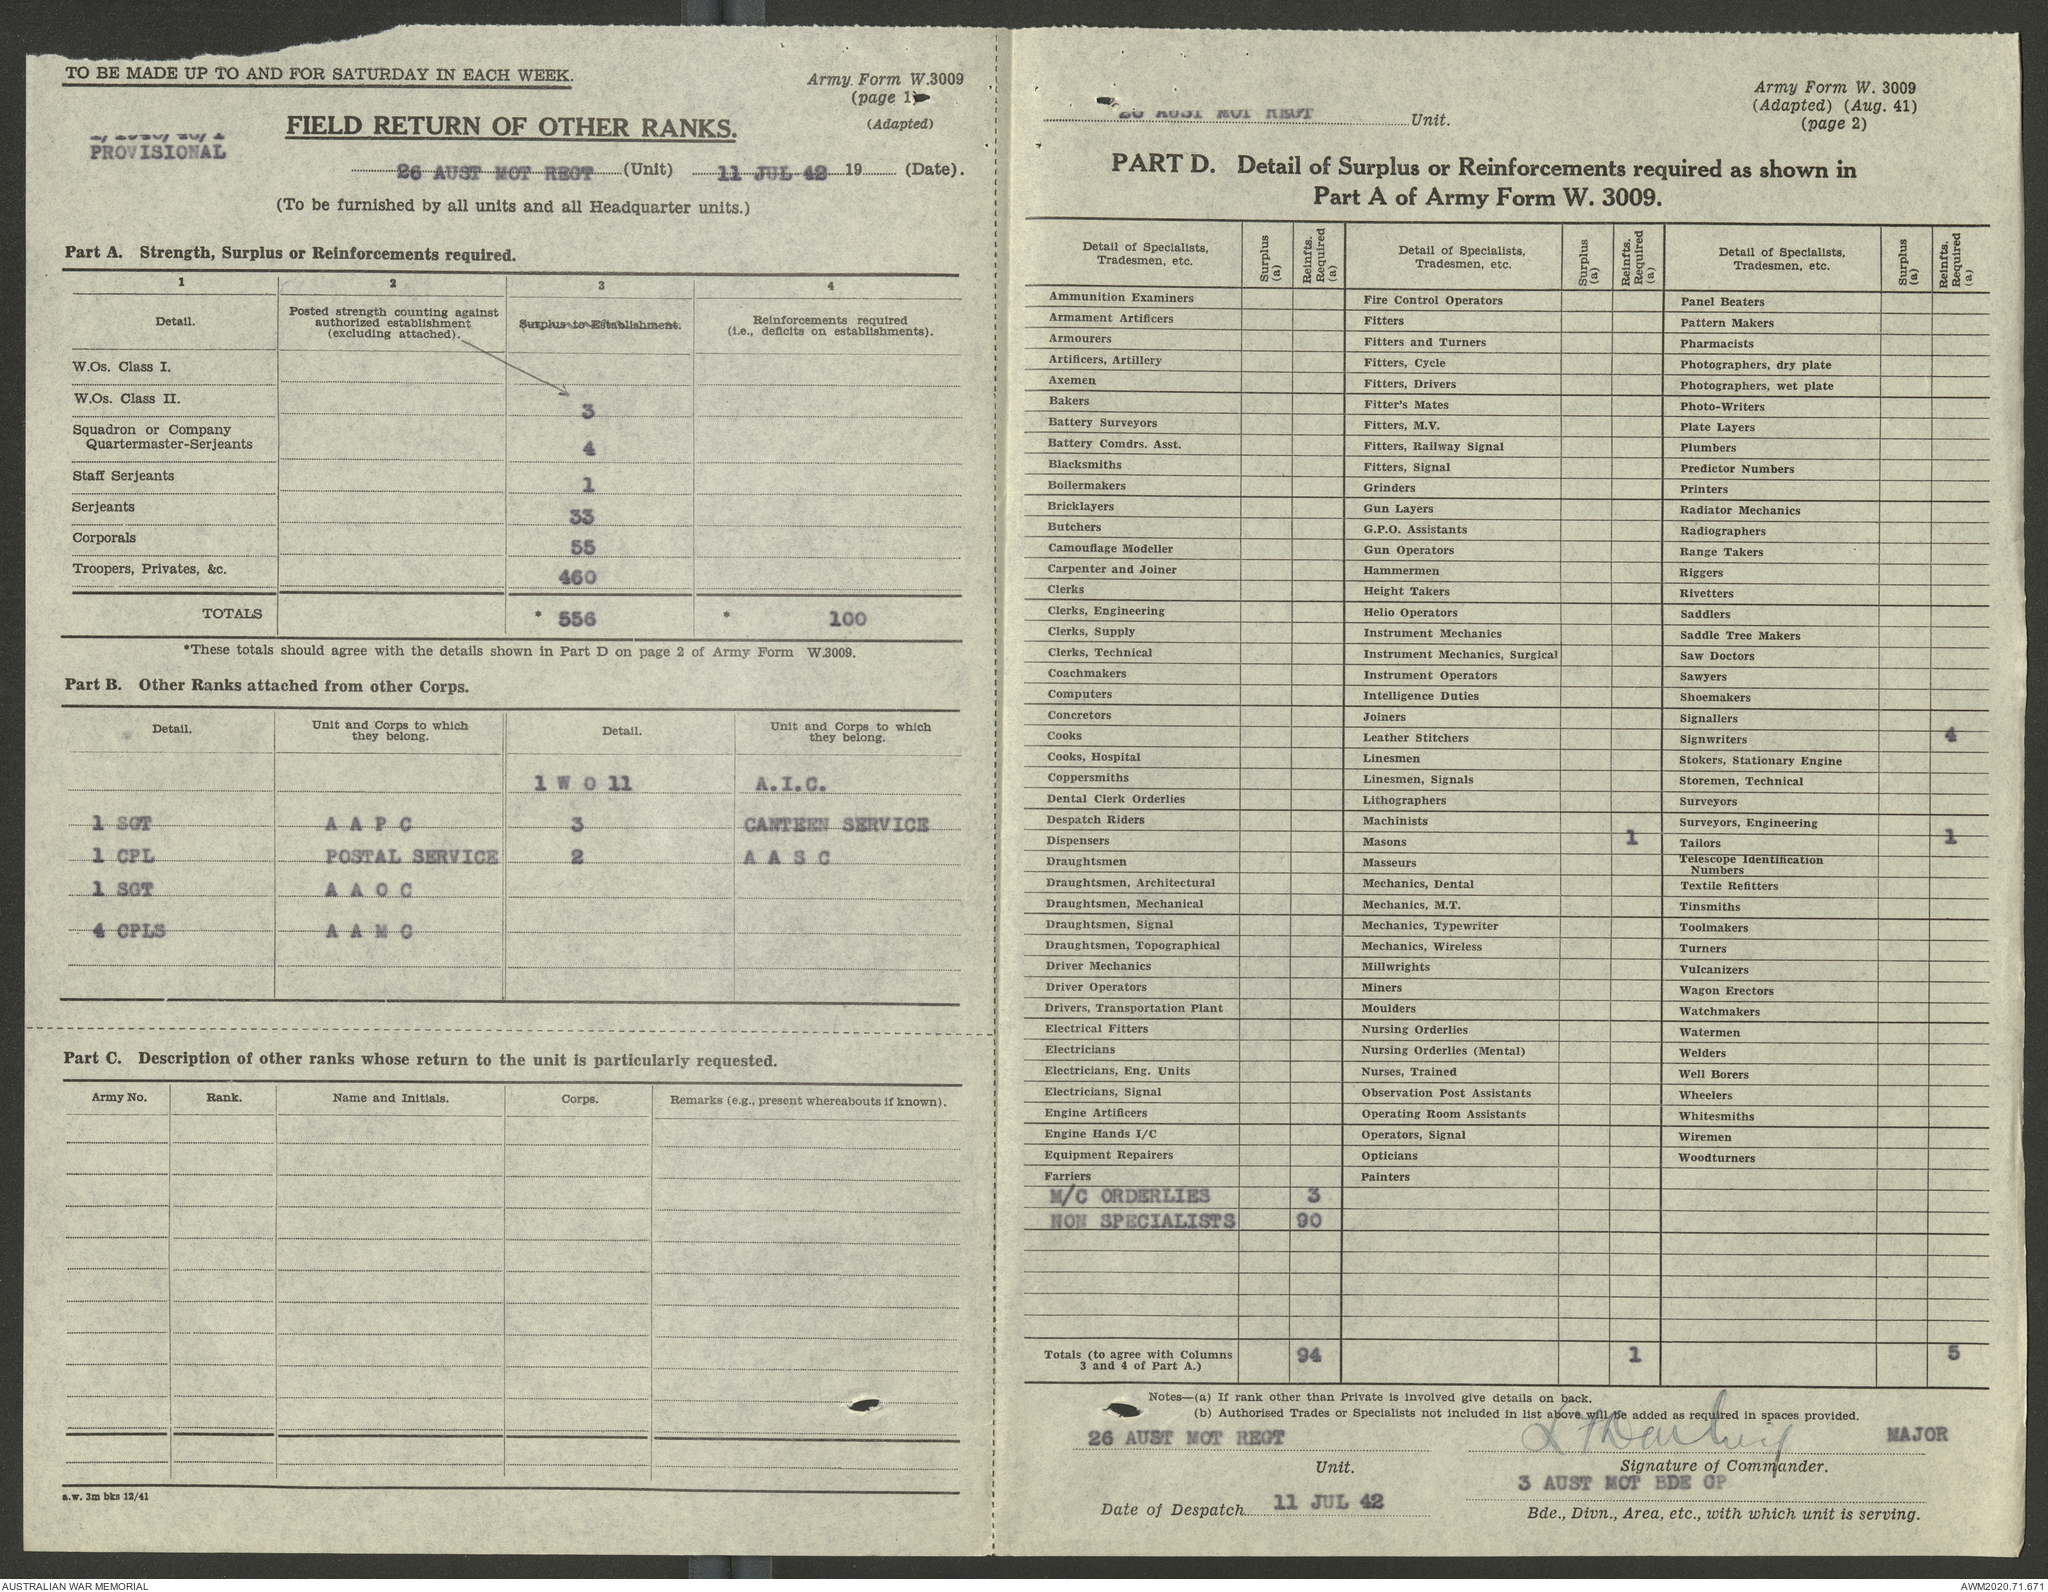 TO BE MADE UP TO AND FOR SATURDAY IN EACH WEEK.
Army Form W.3009
(page 1)
(Adapted)
FIELD RETURN OF OTHER RANKS.
PROVISIONAL
26 AUST MOT REGT (Unit) 11 JUL 42 19 (Date).
(To be furnished by all units and all Headquarter units.)
Part A. Strength, Surplus or Reinforcements required.
1 2 3 4
Detail. Posted strength counting against authorized establishment (excluding attached). Surplus to Establishment. Reinforcements required (i.e., deficits on establishments).
W.Os. Class I.
W.Os. Class II. 3
Squadron or Company
Quartermaster-Serjeants 4
Staff Serjeants 1
Serjeants 33
Corporals 55
Troopers, Privates, &c. 460
TOTALS * 556 * 100
*These totals should agree with the details shown in Part D on page 2 of Army Form W.3009.
Part B. Other Ranks attached from other Corps.
Detail. Unit and Corps to which they belong. Detail. Unit and Corps to which they belong.
1 W O 11 A.I.C.
1 SGT A A P C 3 CANTEEN SERVICE
1 CPL POSTAL SERVICE 2 A A S C
1 SGT A A O C
4 CPLS A A M C
Part C. Description of other ranks whose return to the unit is particularly requested.
Army No. Rank. Name and Initials. Corps. Remarks (e.g., present whereabouts if known).
a.w. 3m bks 12/41
26 AUST MOT REGT Unit.
Army Form W. 3009
(Adapted) (Aug. 41)
(page 2)
PART D. Detail of Surplus or Reinforcements required as shown in
Part A of Army Form W. 3009.
Detail of Specialists, Tradesmen, etc. Surplus (a) Reinfts. Required (a) Detail of Specialists, Tradesmen, etc. Surplus (a) Reinfts. Required (a) Detail of Specialists, Tradesmen, etc. Surplus (a) Reinfts. Required (a)
Ammunition Examiners Fire Control Operators Panel Beaters
Armament Artificers Fitters Pattern Makers
Armourers Fitters and Turners Pharmacists
Artificers, Artillery Fitters, Cycle Photographers, dry plate
Axemen Fitters, Drivers Photographers, wet plate
Bakers Fitter's Mates Photo-Writers
Battery Surveyors Fitters, M.V. Plate Layers
Battery Comdrs. Asst. Fitters, Railway Signal Plumbers
Blacksmiths Fitters, Signal Predictor Numbers
Boilermakers Grinders Printers
Bricklayers Gun Layers Radiator Mechanics
Butchers G.P.O. Assistants Radiographers
Camouflage Modeller Gun Operators Range Takers
Carpenter and Joiner Hammermen Riggers
Clerks Height Takers Rivetters
Clerks, Engineering Helio Operators Saddlers
Clerks, Supply Instrument Mechanics Saddle Tree Makers
Clerks, Technical Instrument Mechanics, Surgical Saw Doctors
Coachmakers Instrument Operators Sawyers
Computers Intelligence Duties Shoemakers
Concretors Joiners Signallers
Cooks Leather Stitchers Signwriters 4
Cooks, Hospital Linesmen Stokers, Stationary Engine
Coppersmiths Linesmen, Signals Storemen, Technical
Dental Clerk Orderlies Lithographers Surveyors
Despatch Riders Machinists Surveyors, Engineering
Dispensers Masons 1 Tailors 1
Draughtsmen Masseurs Telescope Identification Numbers
Draughtsmen, Architectural Mechanics, Dental Textile Refitters
Draughtsmen, Mechanical Mechanics, M.T. Tinsmiths
Draughtsmen, Signal Mechanics, Typewriter Toolmakers
Draughtsmen, Topographical Mechanics, Wireless Turners
Driver Mechanics Millwrights Vulcanizers
Driver Operators Miners Wagon Erectors
Drivers, Transportation Plant Moulders Watchmakers
Electrical Fitters Nursing Orderlies Watermen
Electricians Nursing Orderlies (Mental) Welders
Electricians, Eng. Units Nurses, Trained Well Borers
Electricians, Signal Observation Post Assistants Wheelers
Engine Artificers Operating Room Assistants Whitesmiths
Engine Hands I/C Operators, Signal Wiremen
Equipment Repairers Opticians Woodturners
Farriers Painters
M/C ORDERLIES 3
NON SPECIALISTS 90
Totals (to agree with Columns 3 and 4 of Part A.) 94 1 5
Notes—(a) If rank other than Private is involved give details on back.
(b) Authorised Trades or Specialists not included in list above will be added as required in spaces provided.
26 AUST MOT REGT MAJOR
Unit. Signature of Commander.
3 AUST MOT BDE GP
Date of Despatch 11 JUL 42 Bde., Divn., Area, etc., with which unit is serving.
AUSTRALIAN WAR MEMORIAL AWM2020.71.671